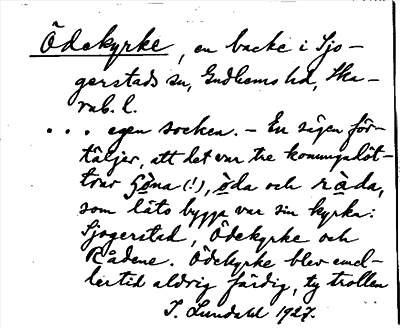 Ödekyrke, en backe i Sjo-
gerstads sn, Gudhems hd, Ska-
rab. l.
... egen socken. – En sägen för-
täljer, att det var tre konungadöt-
trar Göna (!), öda och råda,
som läto bygga var sin kyrka:
Sjogerstad, Ödekyrke och
Rådene. Ödekyrke blev emel-
lertid aldrig färdig, ty trollen
T. Lundahl 1927.